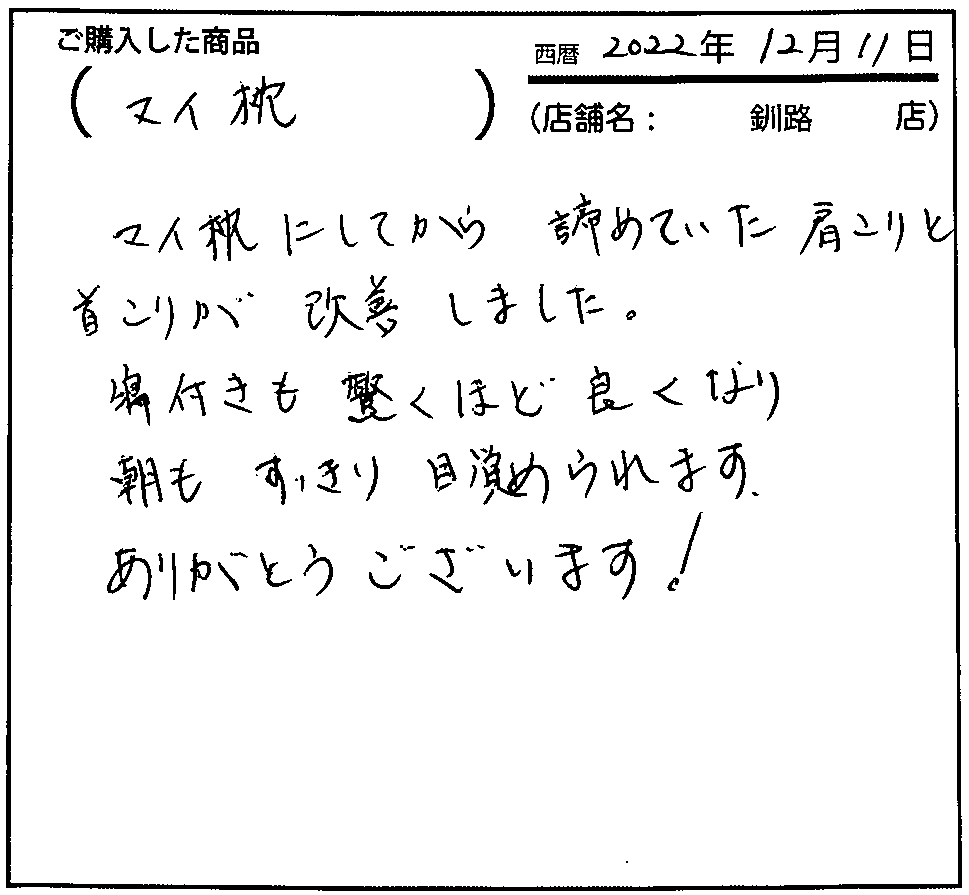 ご購入した商品
(マイ枕)
西暦 2022年 12月 11日
(店舗名： 釧路 店)
マイ枕にしてから 諦めていた 肩こりと
首こりが 改善 しました。
寝付きも 驚くほど 良くなり
朝も すっきり 目覚められます。
ありがとうございます！